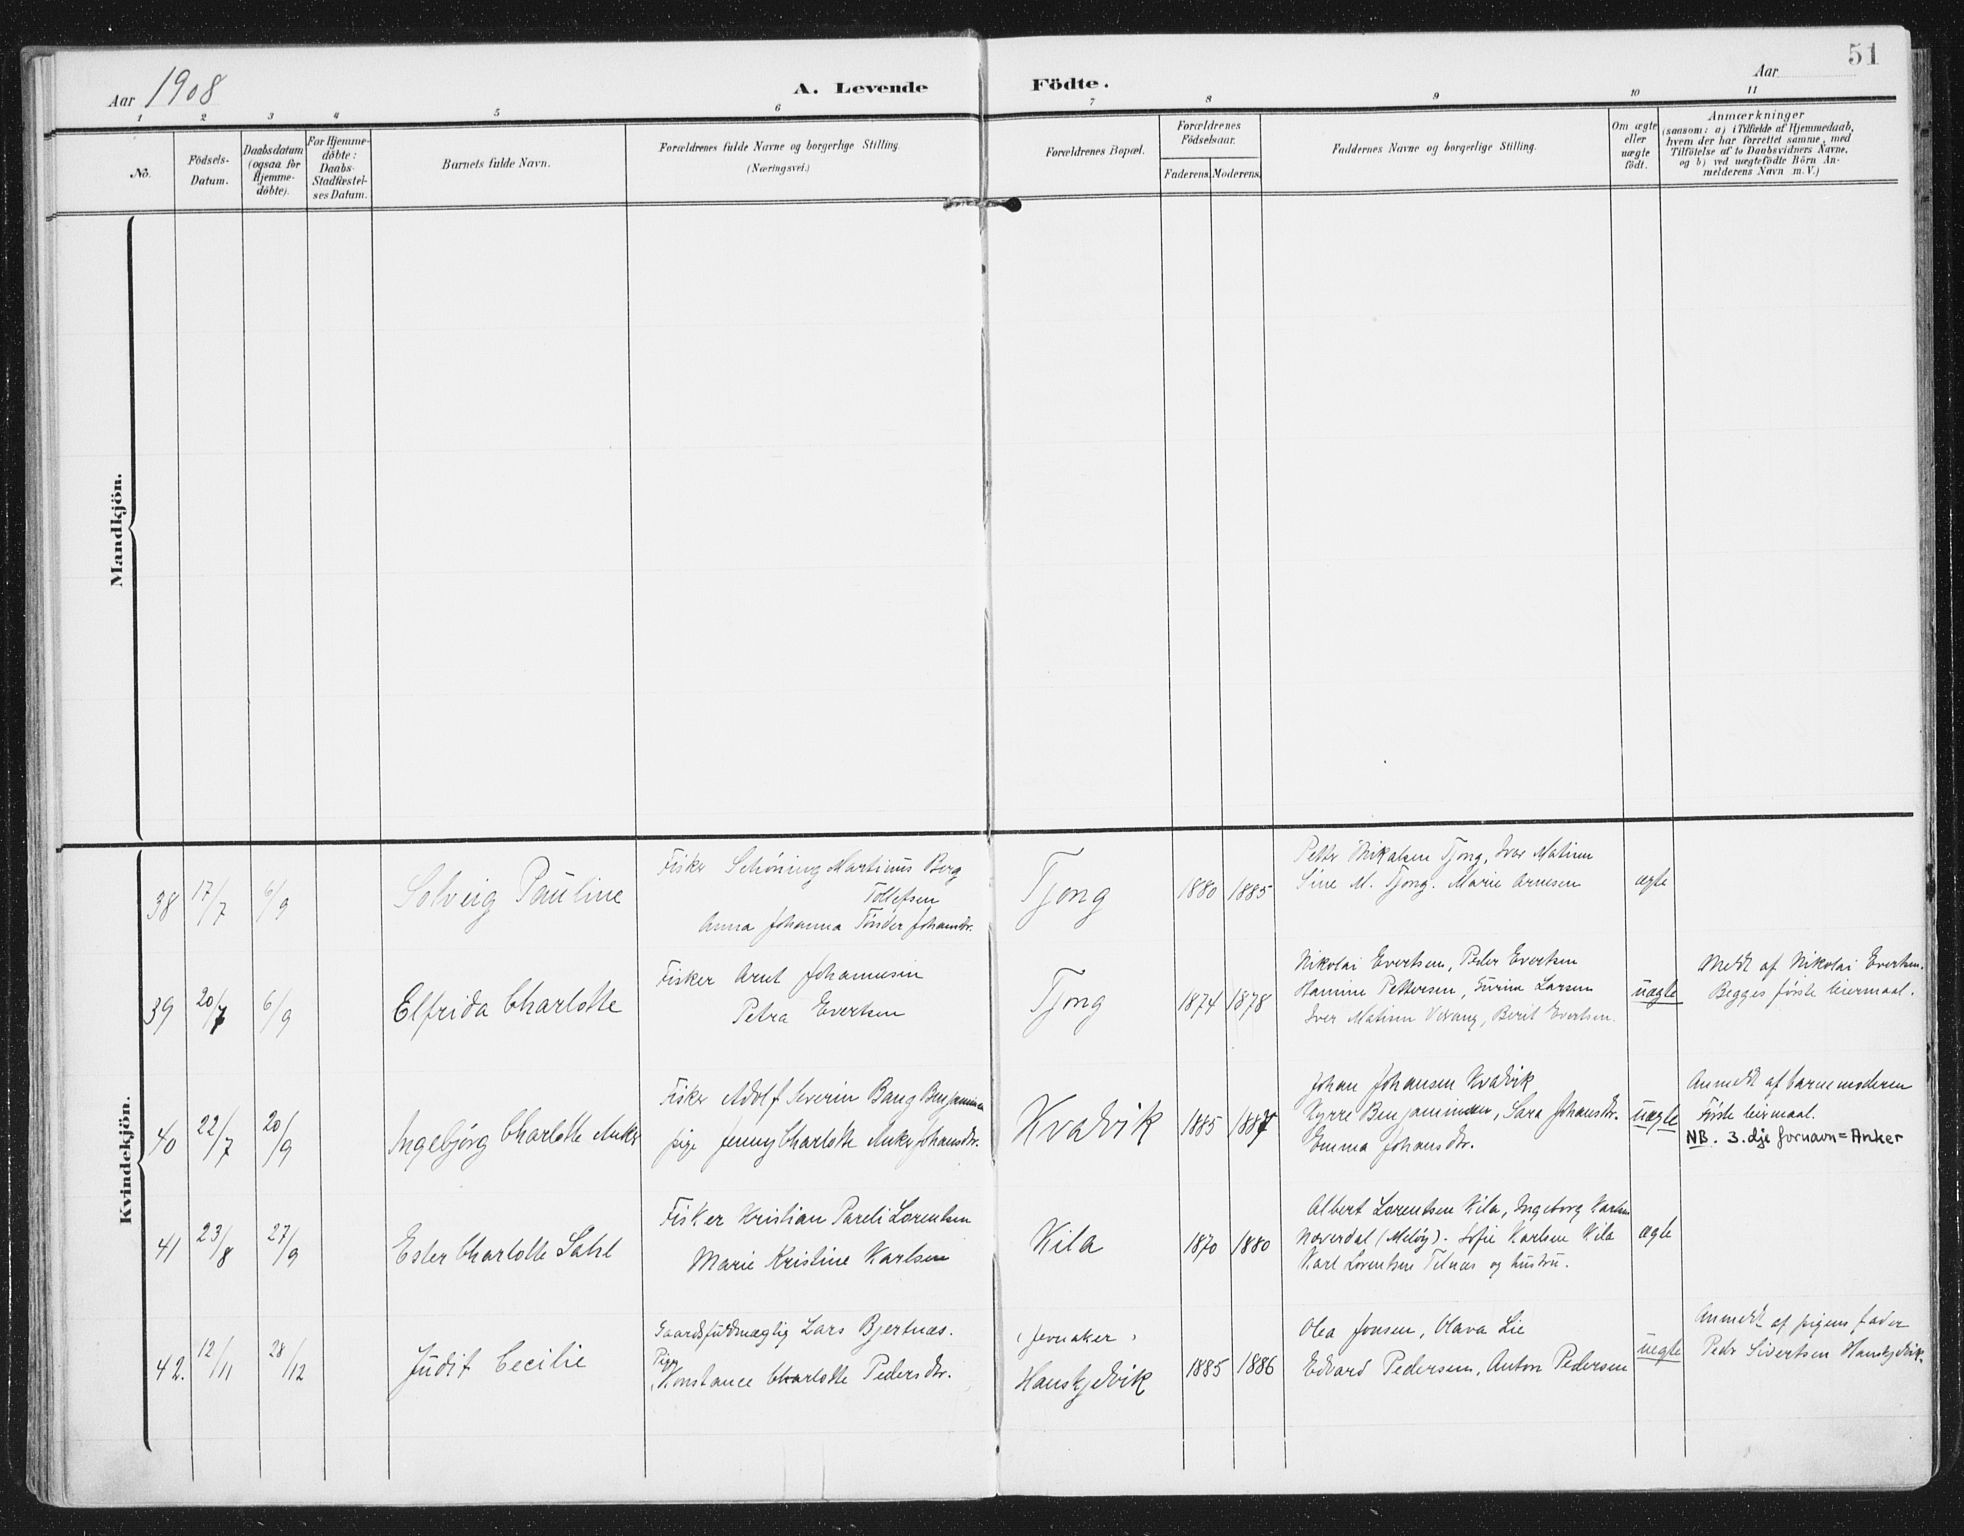 51
Aar 1908
A. Levende Födte.
Aar
1 2 3 4 5 6 7 8 9 10 11
No.
Födsels-Datum.
Daabsdatum (ogsaa for Hjemme-döbte).
For Hjemme-döbte: Daabs-Stadfæstel-ses Datum.
Barnets fulde Navn.
Forældrenes fulde Navne og borgerlige Stilling.
(Næringsvei.)
Forældrenes Bopæl.
Forældrenes Födselsaar.
Faderens. Moderens.
Faddernes Navne og borgerlige Stilling.
Om ægte eller uægte födt.
Anmærkninger
(saasom: a) i Tilfælde af Hjemmedaab,
hvem der har forrettet samme, med
Tilföielse af to Daabsvidners Navne,
og b) ved uægtefödte Börn An-
melderens Navn m. V.)
Mandkjön.
Kvindekjön.
38 17/7 6/9 Solveig Pauline
Fisker Schöning Martinus Berg
Tollefsen
Anna Johanna Tönder Johansdr.
Tjong
1880 1885
Petter Nikolsen Tjong, Iver Matisen
Sine M. Tjong. Marie Arnesen
ægte
39 20/7 6/9 Elfrida Charlotte
Fisker Arnt Johannesen
Petra Evertsen
Tjong
1874 1878
Nikolai Evertsen, Peder Evertsen
Hamine Pettersen, Larsen
Iver Matisen, Berit Evertsen.
uægte
Meldt af Nikolai Evertsen.
Begges første leiermaal.
40 22/7 20/9 Ingebjörg Charlotte Anker
Fisker Adolf Severin Bang Benjaminsen
pige Jenny Charlotte Anker Johansdr.
Kvadvik
1885 1887
Johan Johansen Kvadvik
Kyrre Benjaminsen, Sara Johansdr.
Emma Johansdr.
uægte
Anmeldt af barnemoderen
Første leiermaal.
NB. 3. dje fornavn = Anker
41 23/8 27/9 Ester Charlotte Sahl
Fisker Kristian Pareli Lorentsen
Marie Kristine Karlsen
Kila
1870 1880
Albert Lorentsen Kila, Ingeborg Karlsen
Næverdal (Melöy). Sofie Karlsen Kila
Karl Lorentsen Telnæs og hustru.
ægte
42. 12/11 28/12 Judit Cecilie
Gaardsfuldmægtig Lars Bjertnæs.
Pige
Konstance Charlotte Pedersdr.
(Jevnaker)
Hanskjedvik
1885 1886
Olea Jonsen, Olava Lie
Edvard Pedersen, Anton Pedersen
uegte
Anmeldt af pigens fader
Peder Sivertsen Hanskjedvik.